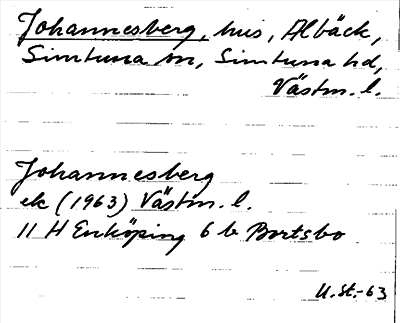 Johannesberg, hus, Albäck,
Simtuna sn, Simtuna hd,
Västm. l.
Johannesberg
ek (1963) Västm. l.
11 H Enköping 6 b Bortsbo
U.St.-63